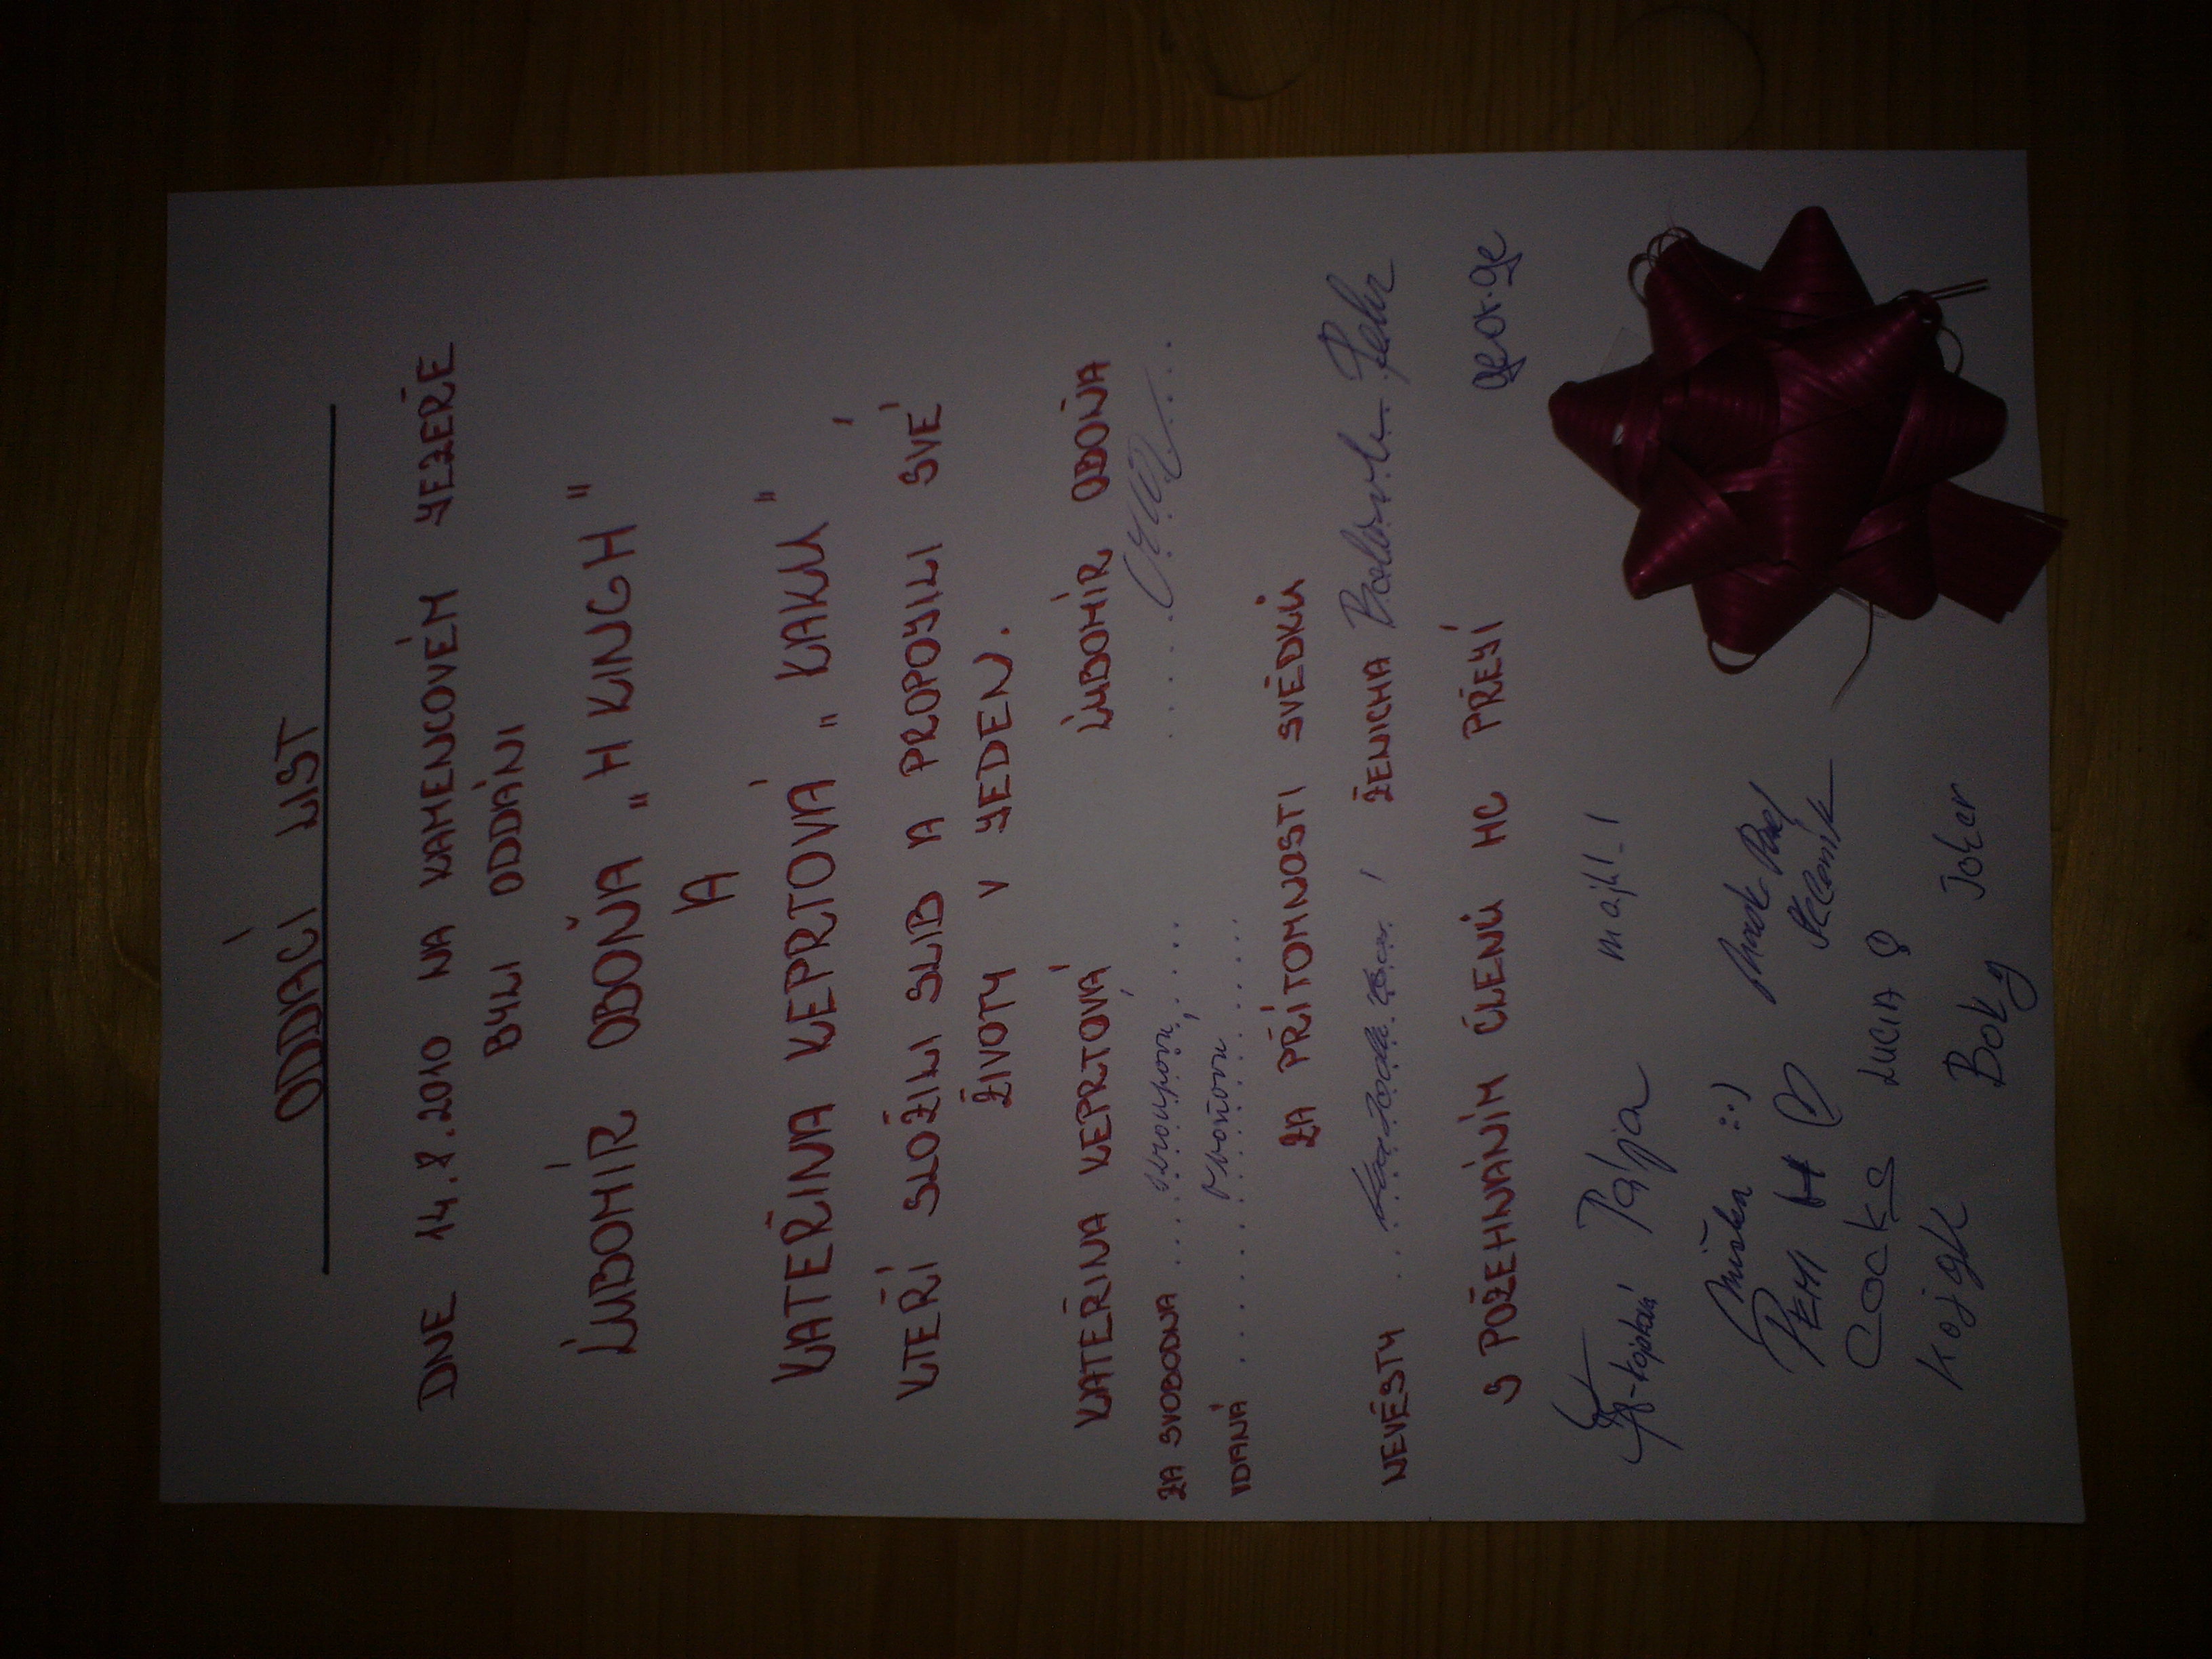 ODDACÍ LIST
DNE 14.8.2010 NA KAMENCOVÉM JEZEŘE
BYLI ODDÁNI
ĹUBOMÍR OBOŇA „H KINGH"
A
KATEŘINA KEPRTOVÁ „KAKU"
KTEŘÍ SLOŽILI SLIB A PROPOJILI SVÉ
ŽIVOTY V JEDEN.
KATEŘINA KEPRTOVÁ ĹUBOMÍR OBOŇA
ZA SVOBODNA
VDANÁ Oboňova
ZA PŘÍTOMNOSTI SVĚDKŮ
NEVĚSTY ŽENICHA
S POŽEHNÁNÍM ČLENŮ HC PŘEJÍ
george
Pája majkl_1
Miška :·)
PEMH
Cocke LUCIA
kojak Boky Joker